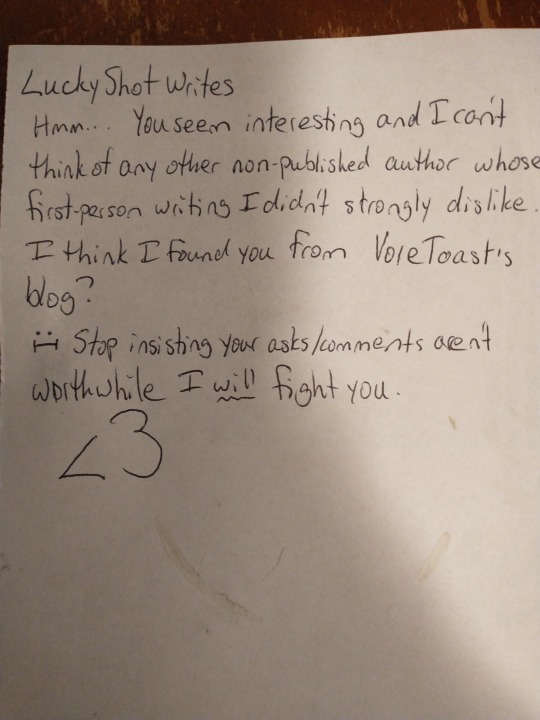 LuckyShot Writes
Hmm... You seem interesting and I can't
think of any other non-published author whose
first-person writing I didn't strongly dislike.
I think I found you from VoreToast's
blog?
:I Stop insisting your asks/comments aren't
worthwhile I will fight you.
<3